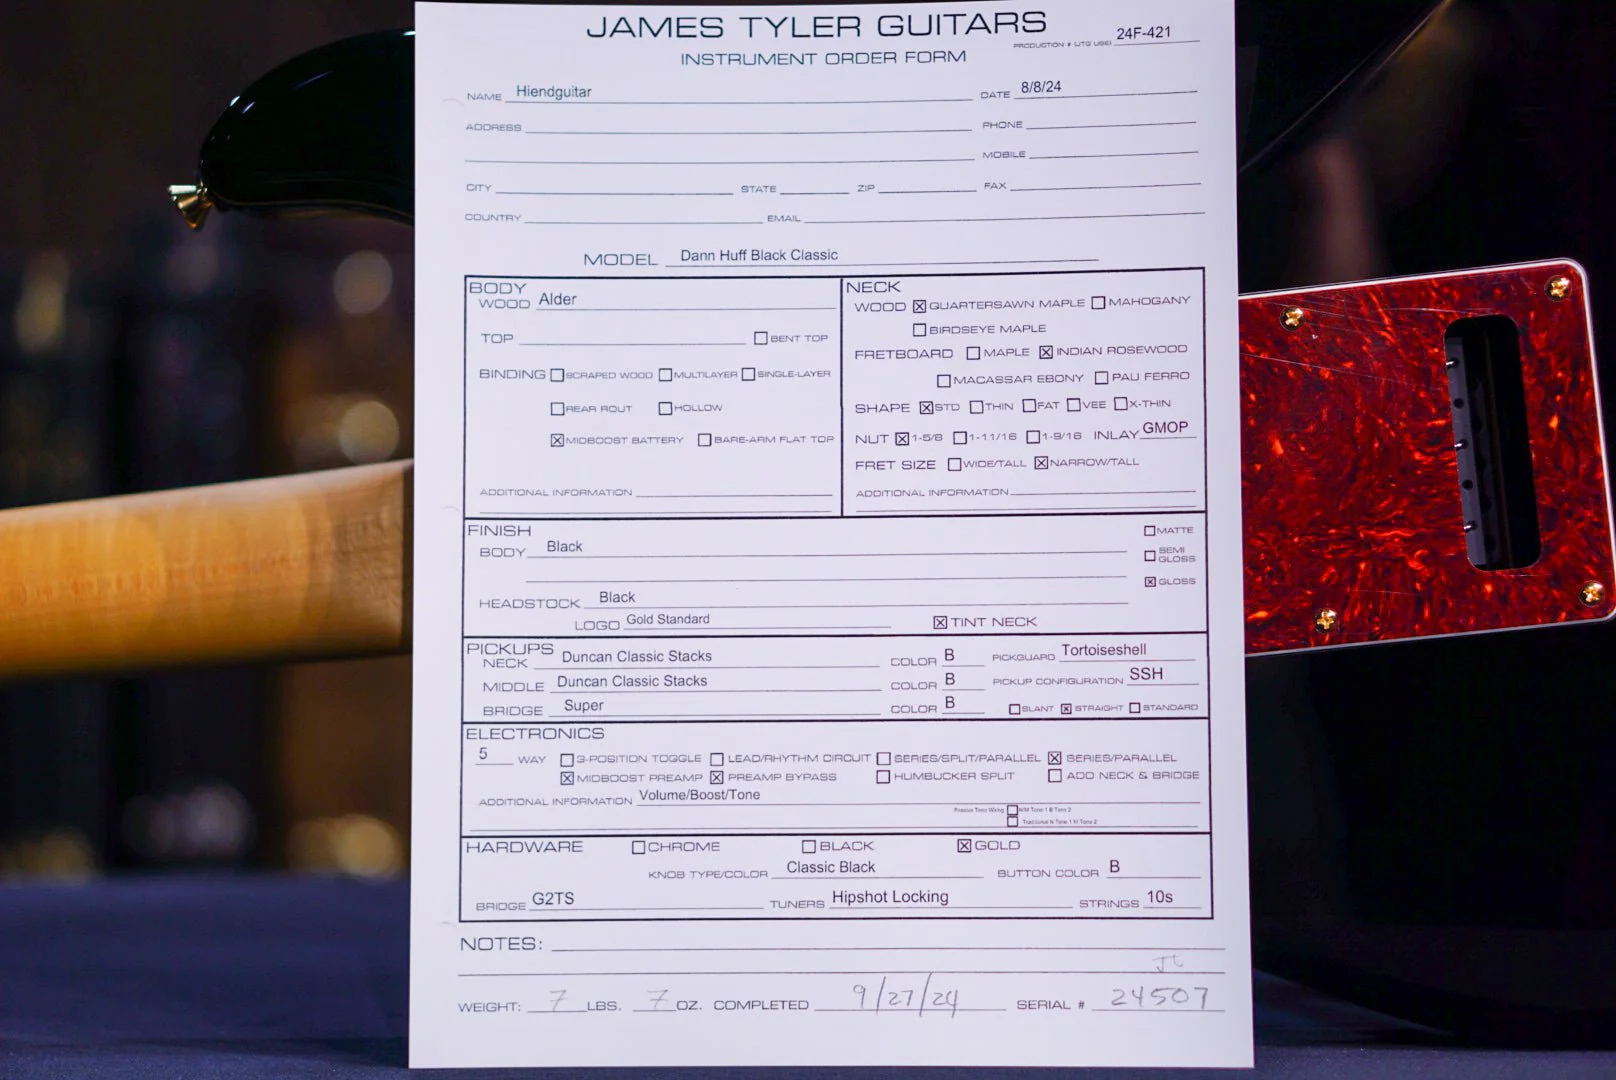 JAMES TYLER GUITARS
INSTRUMENT ORDER FORM
PRODUCTION # (JTG USE) 24F-421
NAME Hiendguitar DATE 8/8/24
ADDRESS PHONE
MOBILE
CITY STATE ZIP FAX
COUNTRY EMAIL
MODEL Dann Huff Black Classic
BODY
WOOD Alder
TOP ☐ BENT TOP
BINDING ☐ SCRAPED WOOD ☐ MULTILAYER ☐ SINGLE-LAYER
☐ REAR ROUT ☐ HOLLOW
☒ MIDBOOST BATTERY ☐ BARE-ARM FLAT TOP
ADDITIONAL INFORMATION
NECK
WOOD ☒ QUARTERSAWN MAPLE ☐ MAHOGANY
☐ BIRDSEYE MAPLE
FRETBOARD ☐ MAPLE ☒ INDIAN ROSEWOOD
☐ MACASSAR EBONY ☐ PAU FERRO
SHAPE ☒ STD ☐ THIN ☐ FAT ☐ VEE ☐ X-THIN
NUT ☒ 1-5/8 ☐ 1-11/16 ☐ 1-9/16 INLAY GMOP
FRET SIZE ☐ WIDE/TALL ☒ NARROW/TALL
ADDITIONAL INFORMATION
FINISH
BODY Black
☐ MATTE
☐ SEMI GLOSS
☒ GLOSS
HEADSTOCK Black
LOGO Gold Standard ☒ TINT NECK
PICKUPS
NECK Duncan Classic Stacks COLOR B PICKGUARD Tortoiseshell
MIDDLE Duncan Classic Stacks COLOR B PICKUP CONFIGURATION SSH
BRIDGE Super COLOR B ☐ SLANT ☒ STRAIGHT ☐ STANDARD
ELECTRONICS
5 WAY ☐ 3-POSITION TOGGLE ☐ LEAD/RHYTHM CIRCUIT ☐ SERIES/SPLIT/PARALLEL ☒ SERIES/PARALLEL
☒ MIDBOOST PREAMP ☒ PREAMP BYPASS ☐ HUMBUCKER SPLIT ☐ ADD NECK & BRIDGE
ADDITIONAL INFORMATION Volume/Boost/Tone
Passive Tone Wiring ☐ Tone 1 B Tone 2
☐ Traditional N Tone 1 M Tone 2
HARDWARE ☐ CHROME ☐ BLACK ☒ GOLD
KNOB TYPE/COLOR Classic Black BUTTON COLOR B
BRIDGE G2TS TUNERS Hipshot Locking STRINGS 10s
NOTES:
WEIGHT: 7 LBS. 7 OZ. COMPLETED 9/27/24 SERIAL # 24507